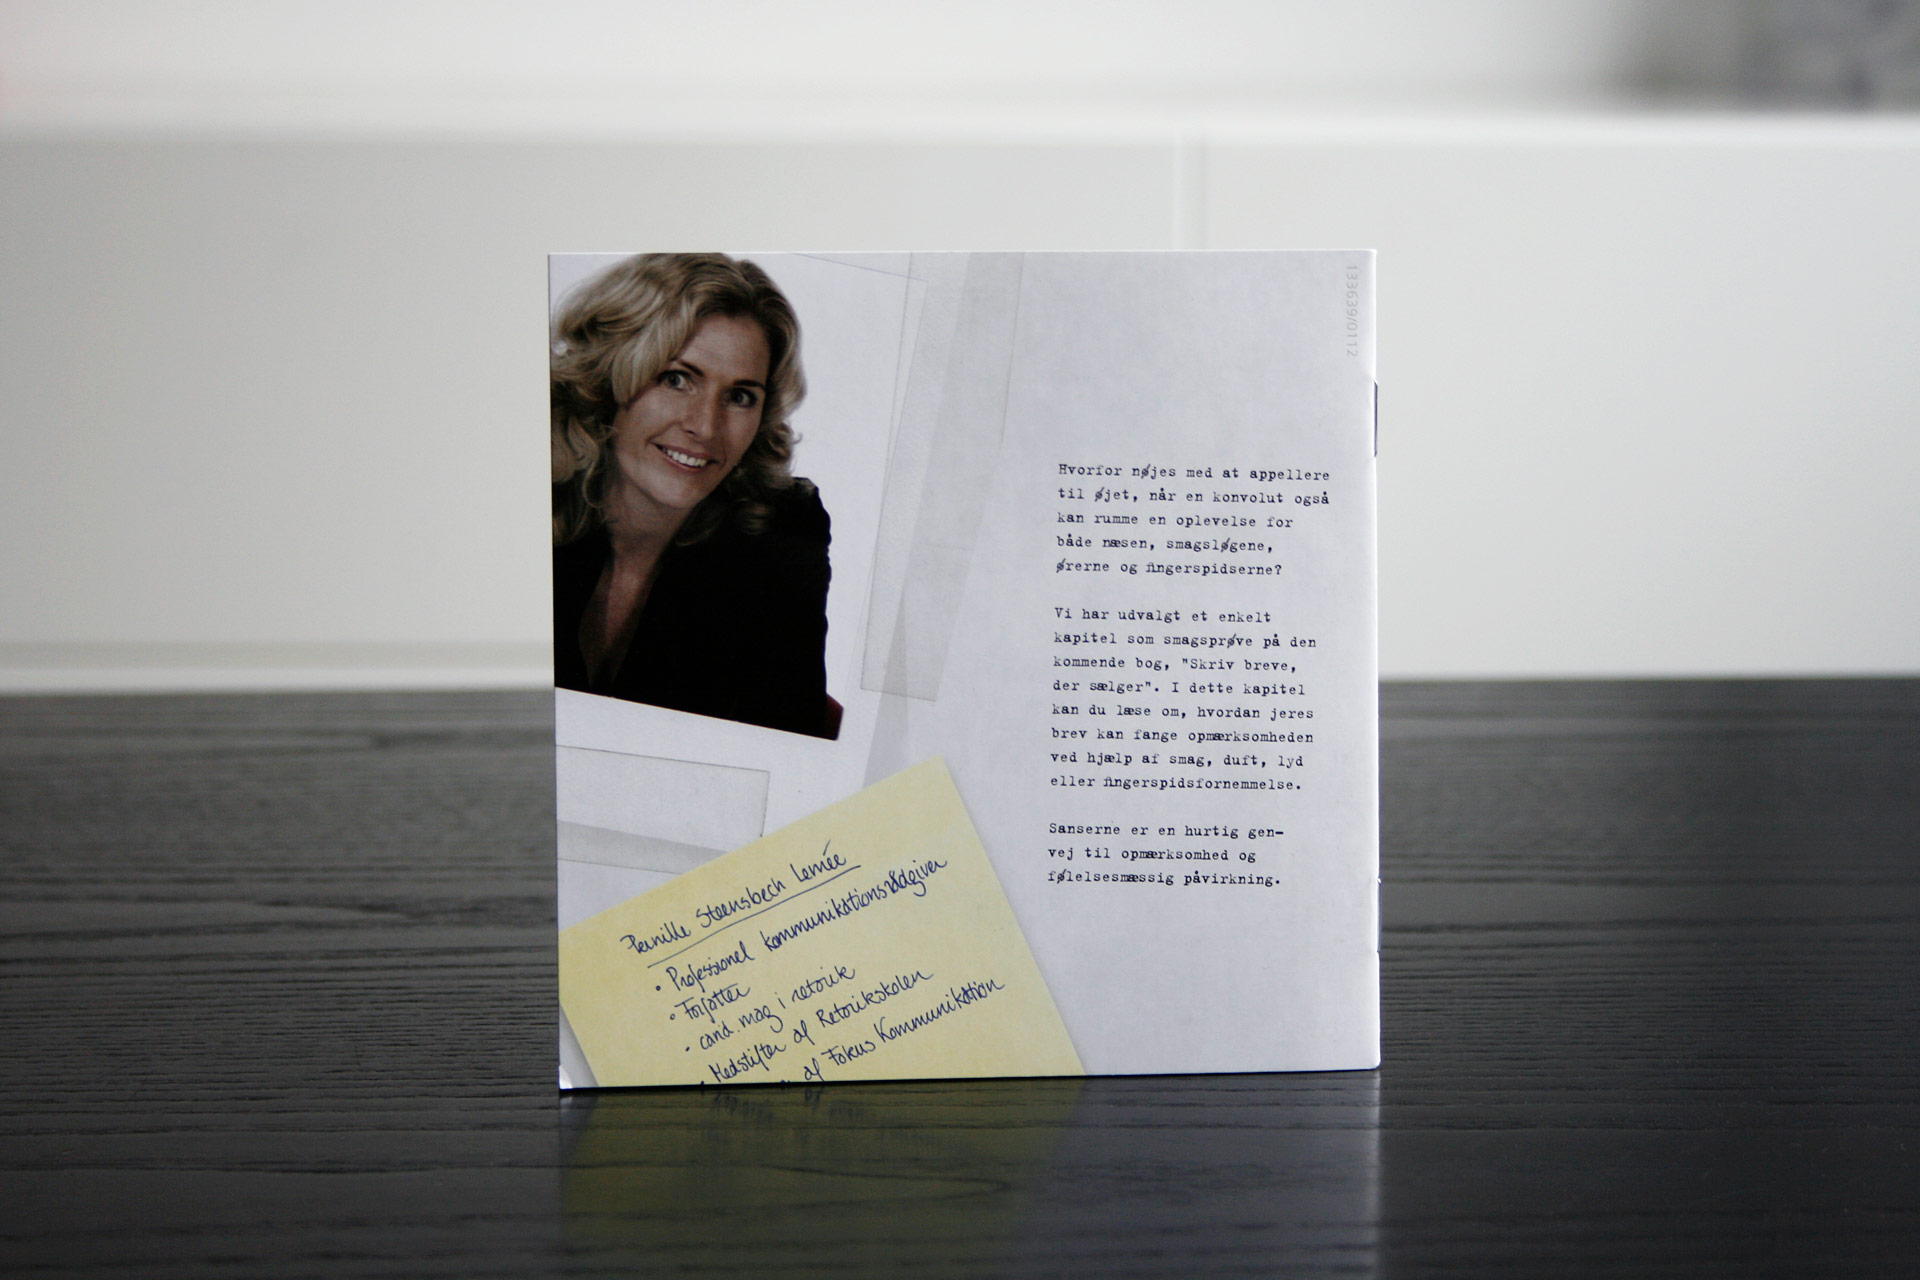 133639/0112
Hvorfor nøjes med at appellere
til øjet, når en konvolut også
kan rumme en oplevelse for
både næsen, smagsløgene,
ørerne og fingerspidserne?
Vi har udvalgt et enkelt
kapitel som smagsprøve på den
kommende bog, "Skriv breve,
der sælger". I dette kapitel
kan du læse om, hvordan jeres
brev kan fange opmærksomheden
ved hjælp af smag, duft, lyd
eller fingerspidsfornemmelse.
Sanserne er en hurtig gen-
vej til opmærksomhed og
følelsesmæssig påvirkning.
Pernille Steensbech Lemée
• Professionel kommunikationsrådgiver
• Forfatter
• cand.mag i retorik
• Medstifter af Retorikskolen
af Fokus Kommunikation